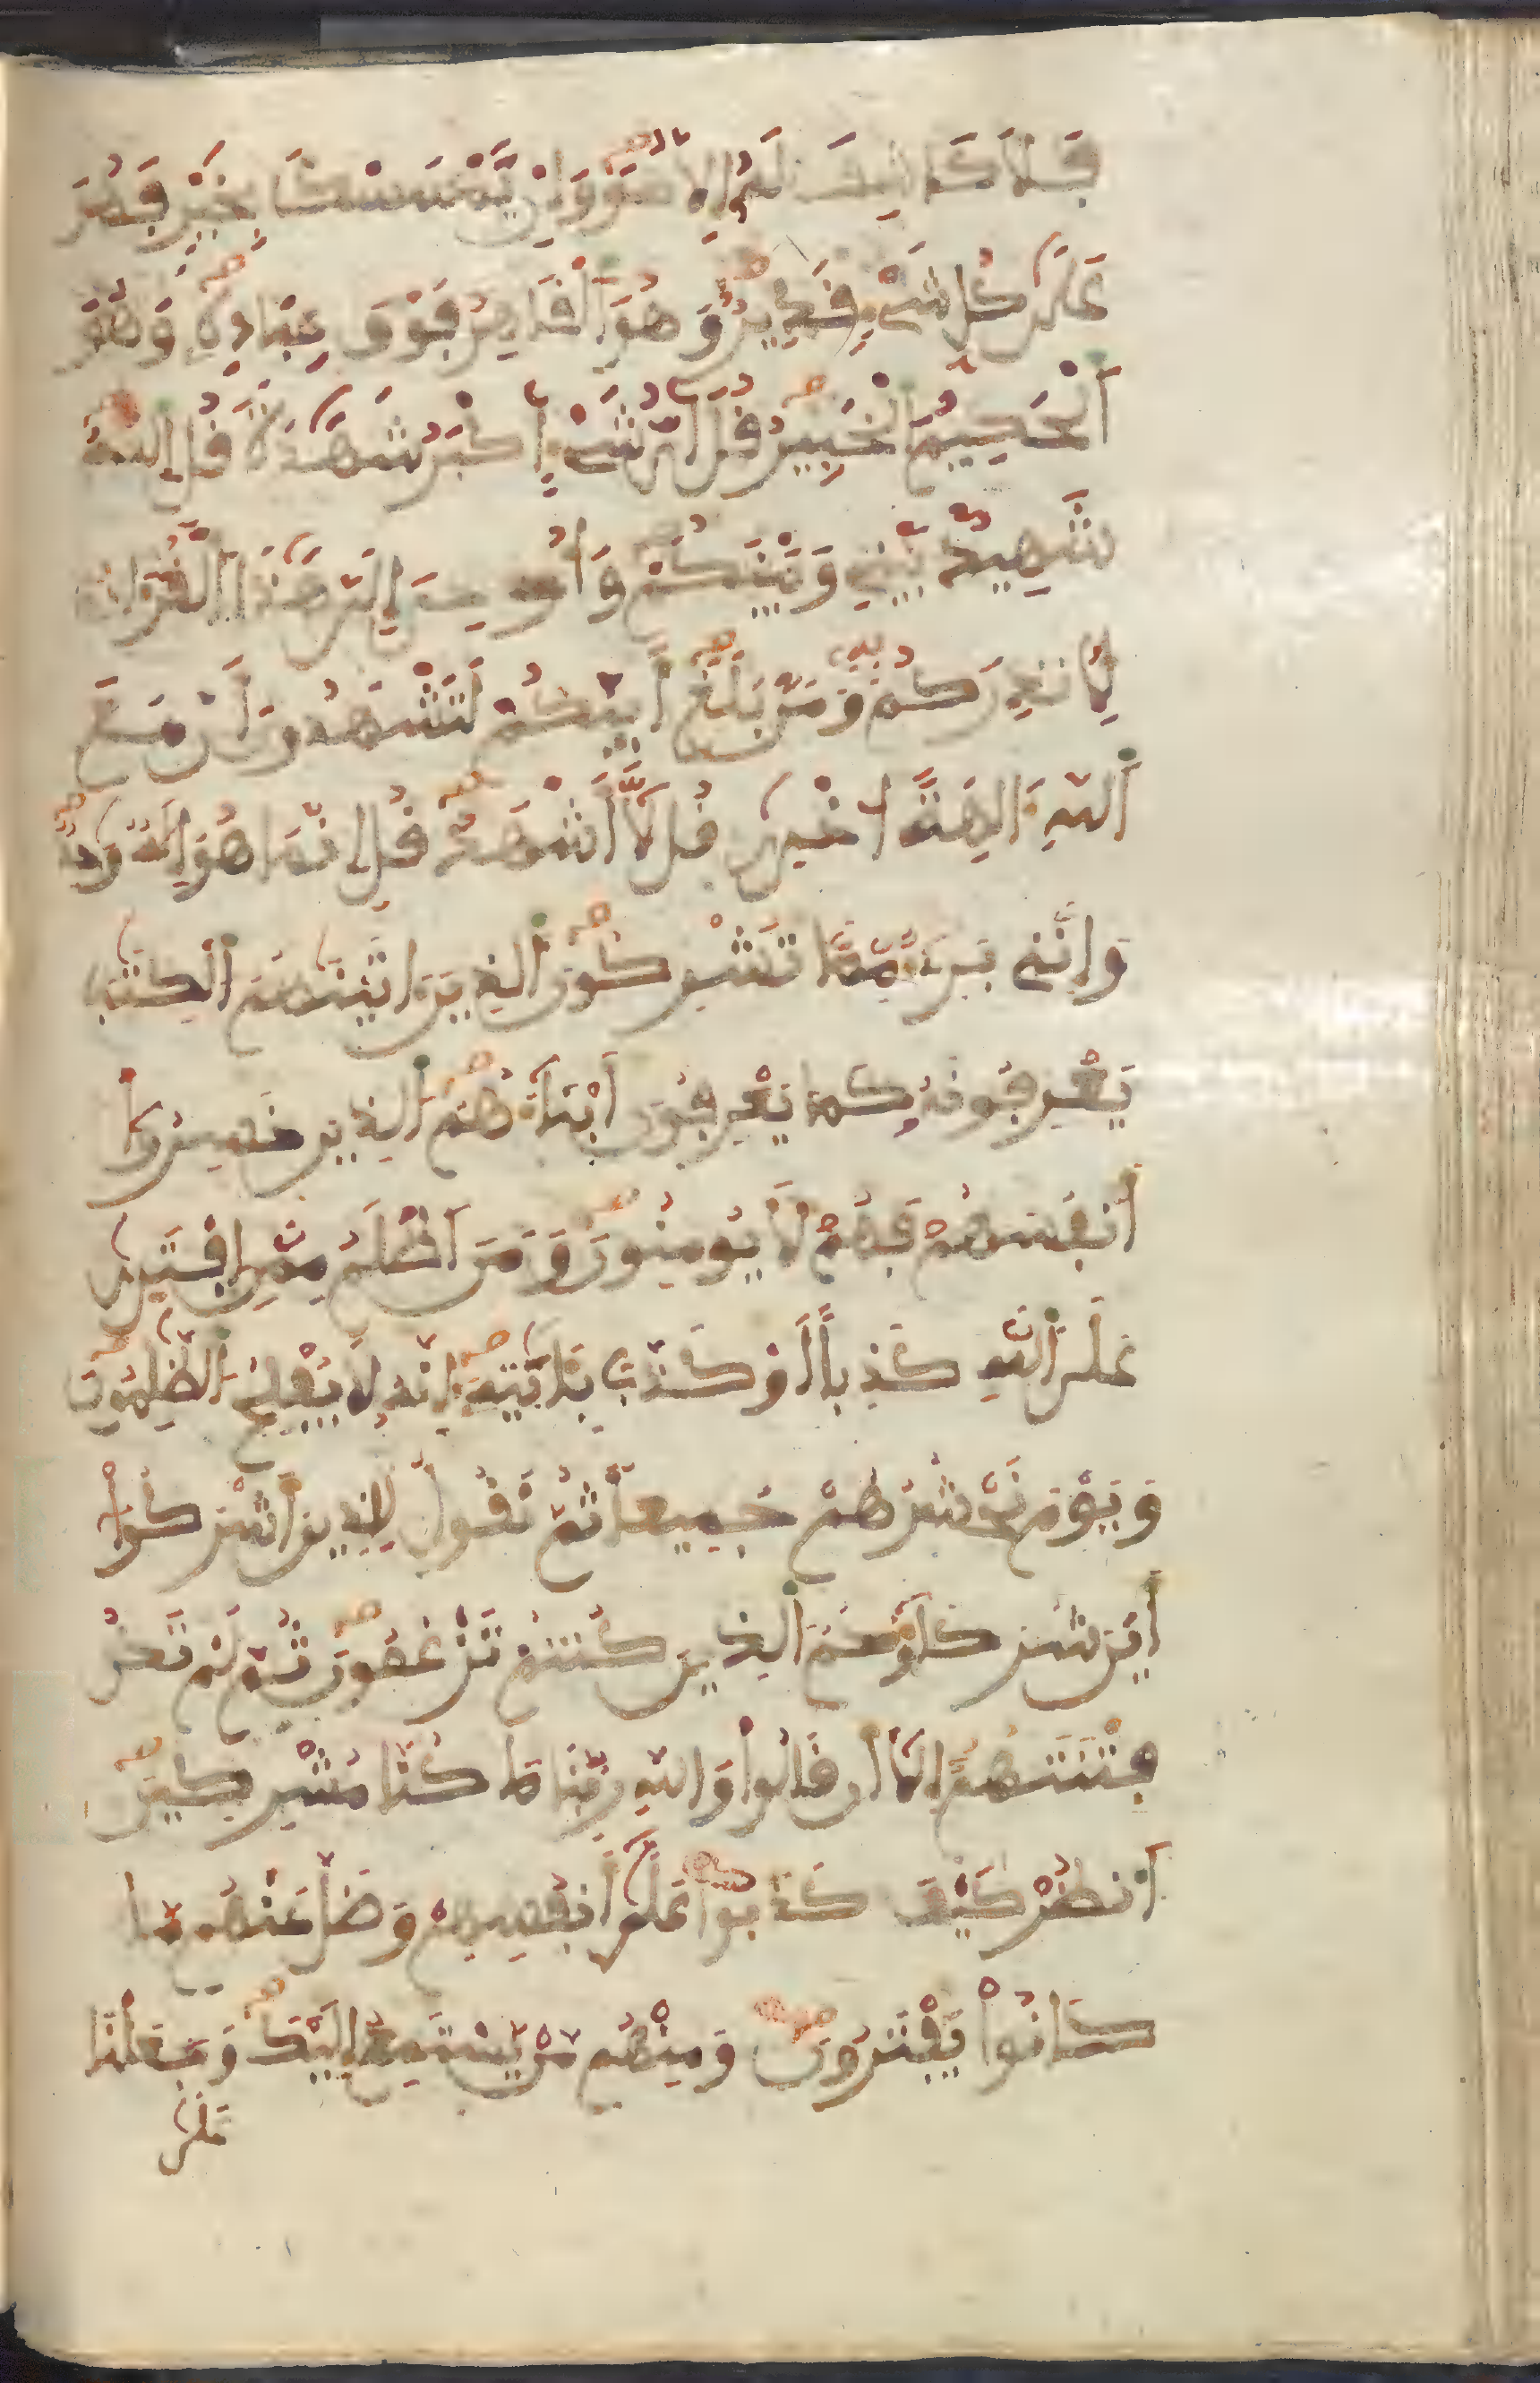 فَلَا كَاشِفَ لَهُۥ إِلَّا هُوَ وَإِنْ يَّمْسَسْكَ بِخَيْرٍ فَهُوَ
عَلَىٰ كُلِّ شَيْءٍ قَدِيرٌ وَهُوَ اَ۬لْقَاهِرُ فَوْقَ عِبَادِهِۦ وَهُوَ
اَ۬لْحَكِيمُ اُ۬لْخَبِيرُ قُلَ اَيُّ شَيْءٍ اَكْبَرُ شَهَٰدَةً قُلِ اِ۬للَّهُ
شَهِيدٌۢ بَيْنِي وَبَيْنَكُمْ وَأُوحِيَ إِلَيَّ هَٰذَا اَ۬لْقُرْءَانُ
لِأُنذِرَكُم بِهِۦ وَمَنۢ بَلَغَ أَئِنَّكُمْ لَتَشْهَدُونَ أَنَّ مَعَ
اَ۬للَّهِ ءَالِهَةً اُخْرَىٰ قُل لَّا أَشْهَدُ قُلِ اِنَّمَا هُوَ إِلَٰهٌ وَٰحِدٌ
وَإِنَّنِي بَرِيءٌ مِّمَّا تُشْرِكُونَ اَ۬لذِينَ ءَاتَيْنَٰهُمُ اُ۬لْكِتَٰبَ
يَعْرِفُونَهُۥ كَمَا يَعْرِفُونَ أَبْنَاءَهُمُ اُ۬لذِينَ خَسِرُواْ
أَنفُسَهُمْ فَهُمْ لَا يُومِنُونَ وَمَنَ اَظْلَمُ مِمَّنِ اِ۪فْتَرَىٰ
عَلَى اَ۬للَّهِ كَذِباً اَوْ كَذَّبَ بِـَٔايَٰتِهِۦ إِنَّهُۥ لَا يُفْلِحُ اُ۬لظَّٰلِمُونَ
وَيَوْمَ نَحْشُرُهُمْ جَمِيعاً ثُمَّ نَقُولُ لِلذِينَ أَشْرَكُواْ
أَيْنَ شُرَكَاؤُكُمُ اُ۬لذِينَ كُنتُمْ تَزْعُمُونَ ثُمَّ لَمْ تَكُن
فِتْنَتَهُمُۥ إِلَّا أَن قَالُواْ وَاللَّهِ رَبِّنَا مَا كُنَّا مُشْرِكِينَ
اَ۟نظُرْ كَيْفَ كَذَبُواْ عَلَىٰ أَنفُسِهِمْ وَضَلَّ عَنْهُم مَّا
كَانُواْ يَفْتَرُونَ وَمِنْهُم مَّنْ يَّسْتَمِعُ إِلَيْكَ وَجَعَلْنَا
عَلَىٰ